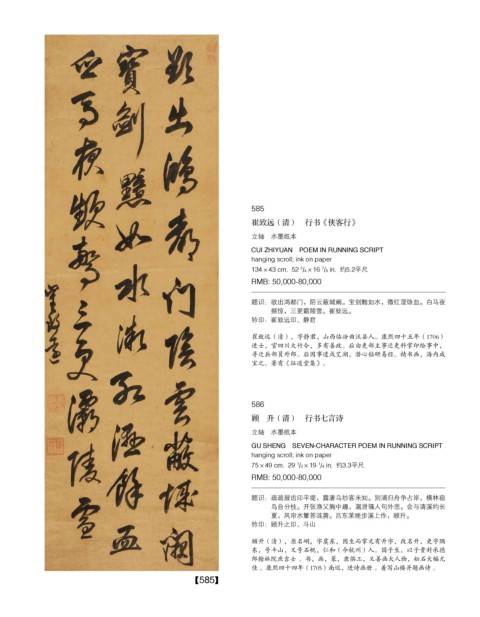 欲出鴻都門陰雲蔽城闕
寶劍黯如水微紅濕餘血
白馬夜頻驚三更灞陵雪
崔致遠
【585】
585
崔致远（清） 行书《侠客行》
立轴 水墨纸本
CUI ZHIYUAN POEM IN RUNNING SCRIPT
hanging scroll; ink on paper
134×43 cm. 52 3/4×16 7/8 in. 约5.2平尺
RMB: 50,000-80,000
题识：欲出鸿都门，阴云蔽城阙。宝剑黯如水，微红湿馀血。白马夜
频惊，三更霸陵雪。崔致远。
钤印：崔致远印、静君
崔致远（清），字静君，山西临汾曲沃县人。康熙四十五年（1706）
进士，官四川大竹令，多有善政。后由吏部主事迁吏科掌印给事中，
寻迁兵部员外郎。后因事遣戍艾湖，潜心钻研易经。精书画，海内咸
宝之。著有《征道堂集》。
586
顾 升（清） 行书七言诗
立轴 水墨纸本
GU SHENG SEVEN-CHARACTER POEM IN RUNNING SCRIPT
hanging scroll; ink on paper
75×49 cm. 29 1/2×19 1/4 in. 约3.3平尺
RMB: 50,000-80,000
题识：疏疏屐齿印平堤，露著乌纱客未知。别浦归舟争占岸，横林宿
鸟自分枝。开张渔父胸中趣，漏泄骚人句外思。会与清溪约长
夏，风帘水簟答涟漪。吕东莱晚步溪上作，顾升。
钤印：顾升之印、斗山
顾升（清），原名明，字震东，因生而掌文有升字，改名升，更字隅
东，号斗山，又号石帆，仁和（今杭州）人。国子生，以子贵封承德
郎翰林院庶吉士 。书、画、篆、隶俱工，又善画大人物，松石大幅尤
佳 。康熙四十四年（1705）南巡，进诗画册 。著写山楼井题画诗 。